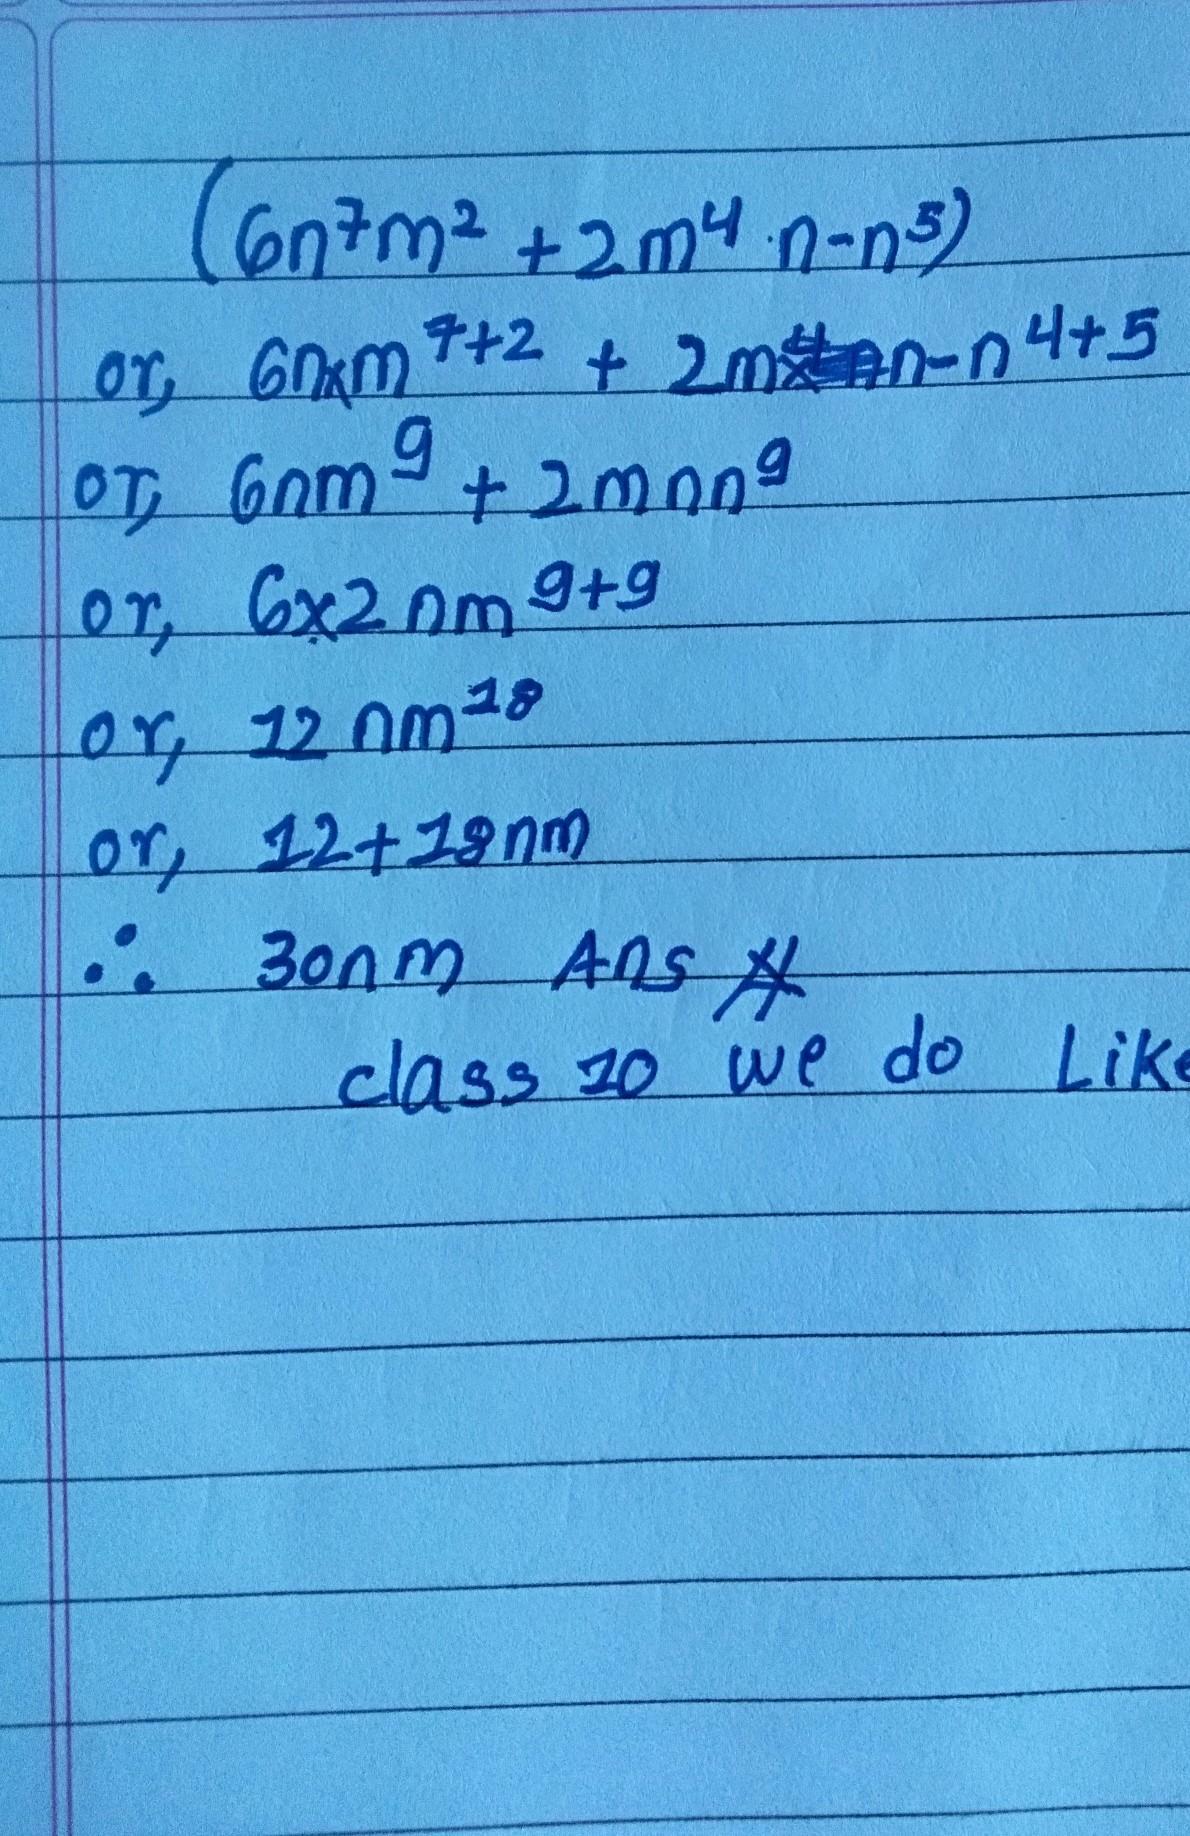 (6n⁷m² + 2m⁴·n-n⁵)
or, 6n×m⁷⁺² + 2m n-n⁴⁺⁵
or, 6nm⁹ + 2mnn⁹
or, 6×2nm⁹⁺⁹
or, 12nm¹⁸
or, 12+18nm
∴ 30nm Ans
class 10 we do Like